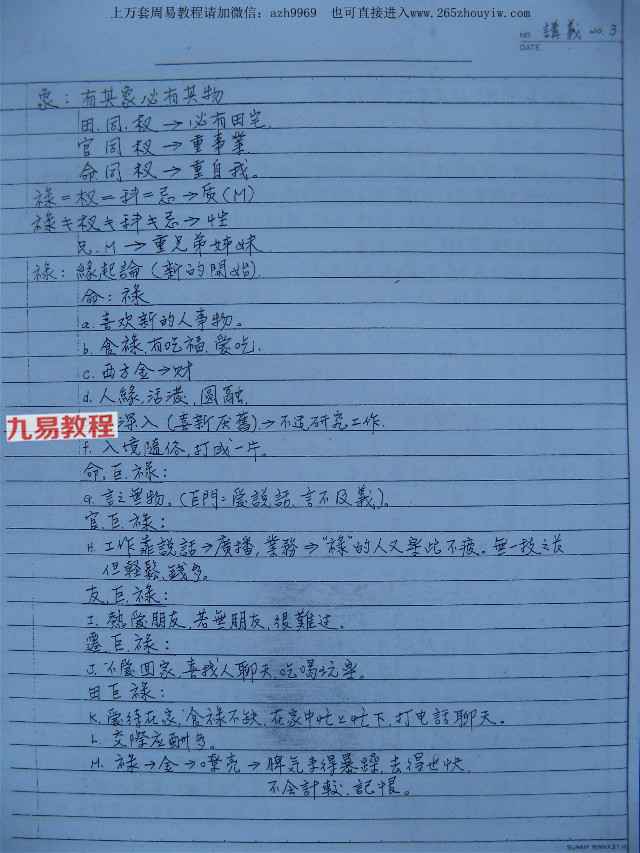 上万套周易教程请加微信：azh9969 也可直接进入www.265zhouyiw.com
NO. 講義 no.3
DATE
象：有其象必有其物
田.同.权→必有田宅.
官同权→重事業
命同权→重自我。
祿=权=科=忌→質(M)
祿≒权≒科≒忌→性
兄.M→重兄弟姊妹
祿：緣起論(新的開始).
命：祿
a.喜欢新的人事物。
b.食祿.有吃福.愛吃.
c.西方金→财
d.人緣,活潑,圓融.
九易教程
深入(喜新厌舊)→不适研究工作.
f.入境隨俗,打成一片。
命.巨.祿：
g.言之無物。(巨門=愛說話.言不及義)。
官.巨.祿：
H.工作靠說話→廣播,業務→"祿"的人又樂此不疲。無一技之長
但輕鬆,錢多。
友,巨.祿：
I.熱愛朋友,若無朋友,很難过.
遷巨.祿：
J.不愛回家,喜找人聊天.吃喝玩樂。
田巨祿：
K.愛待在家,食祿不缺,在家中忙上忙下,打电話聊天。
L.交際应酬多。
M.祿→金→嘹亮→脾气來得暴躁,去得也快.
不会計較.記恨。